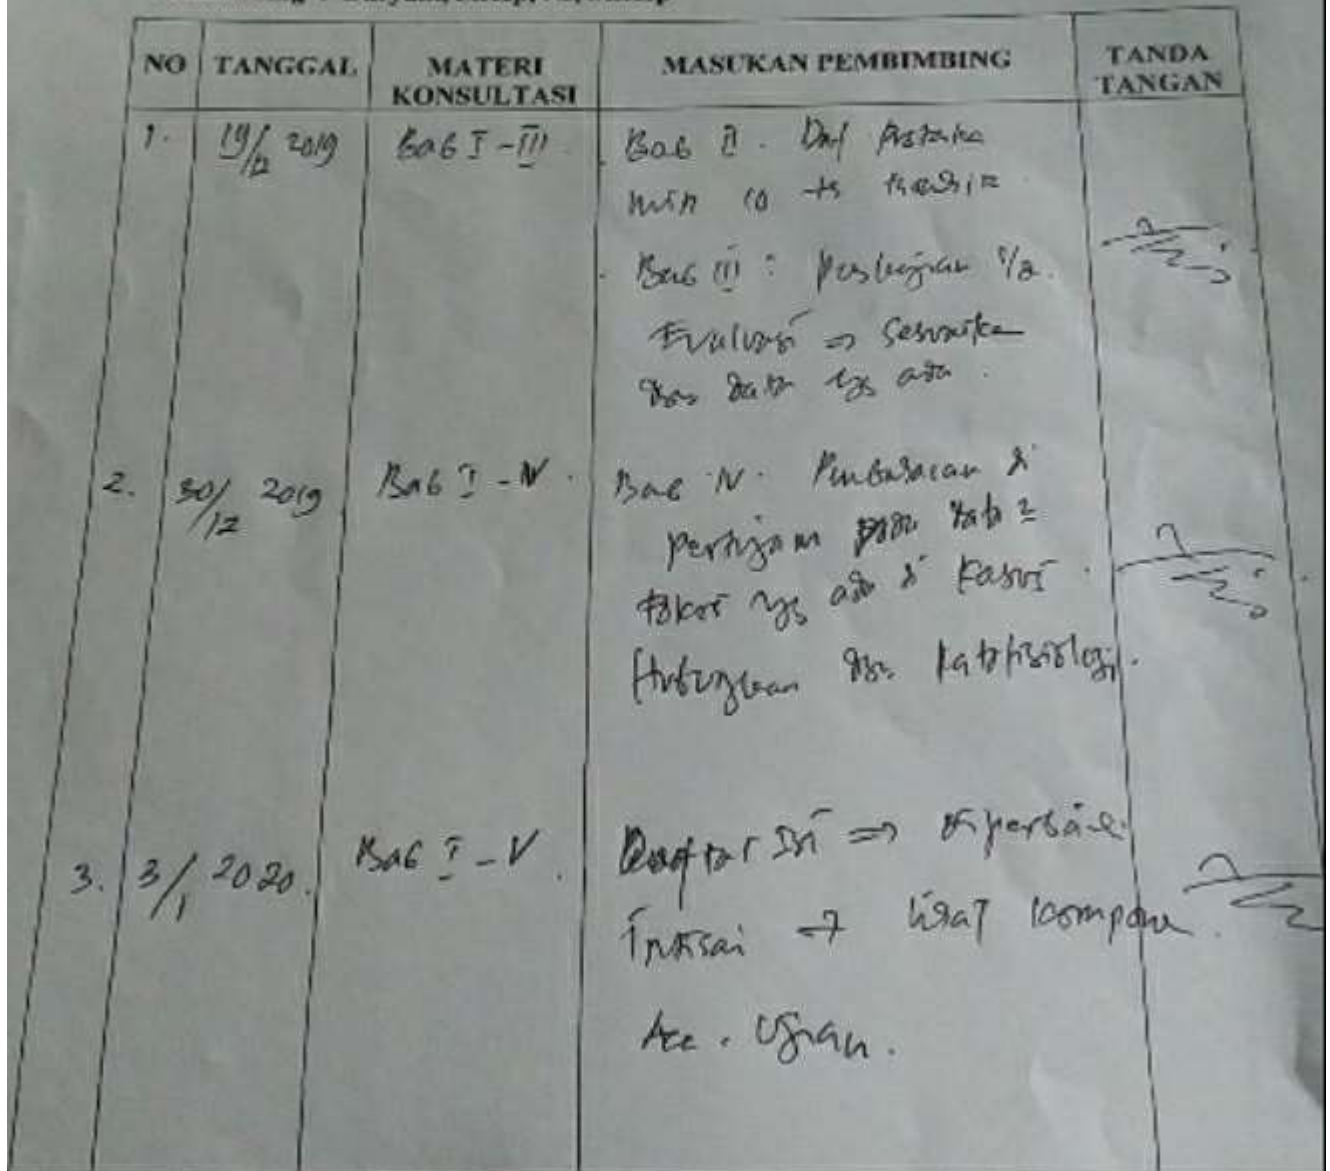 NO TANGGAL MATERI KONSULTASI MASUKAN PEMBIMBING TANDA TANGAN
1. 19/12 2019 Bab I - III Bab II. Daf Pustaka
min 10 th terakhir
Bab III : pengkajian s/d
Evaluasi => sesuaikan
dgn data yg ada.
2. 30/12 2019 Bab I - IV. Bab IV. Pembahasan di
pertajam data
yg ada di kasus.
Hubungkan dgn patofisiologi.
3. 3/1 2020. Bab I - V. Daftar Isi => diperbaiki
Intisari -> lihat kompone
Acc. Ujian.